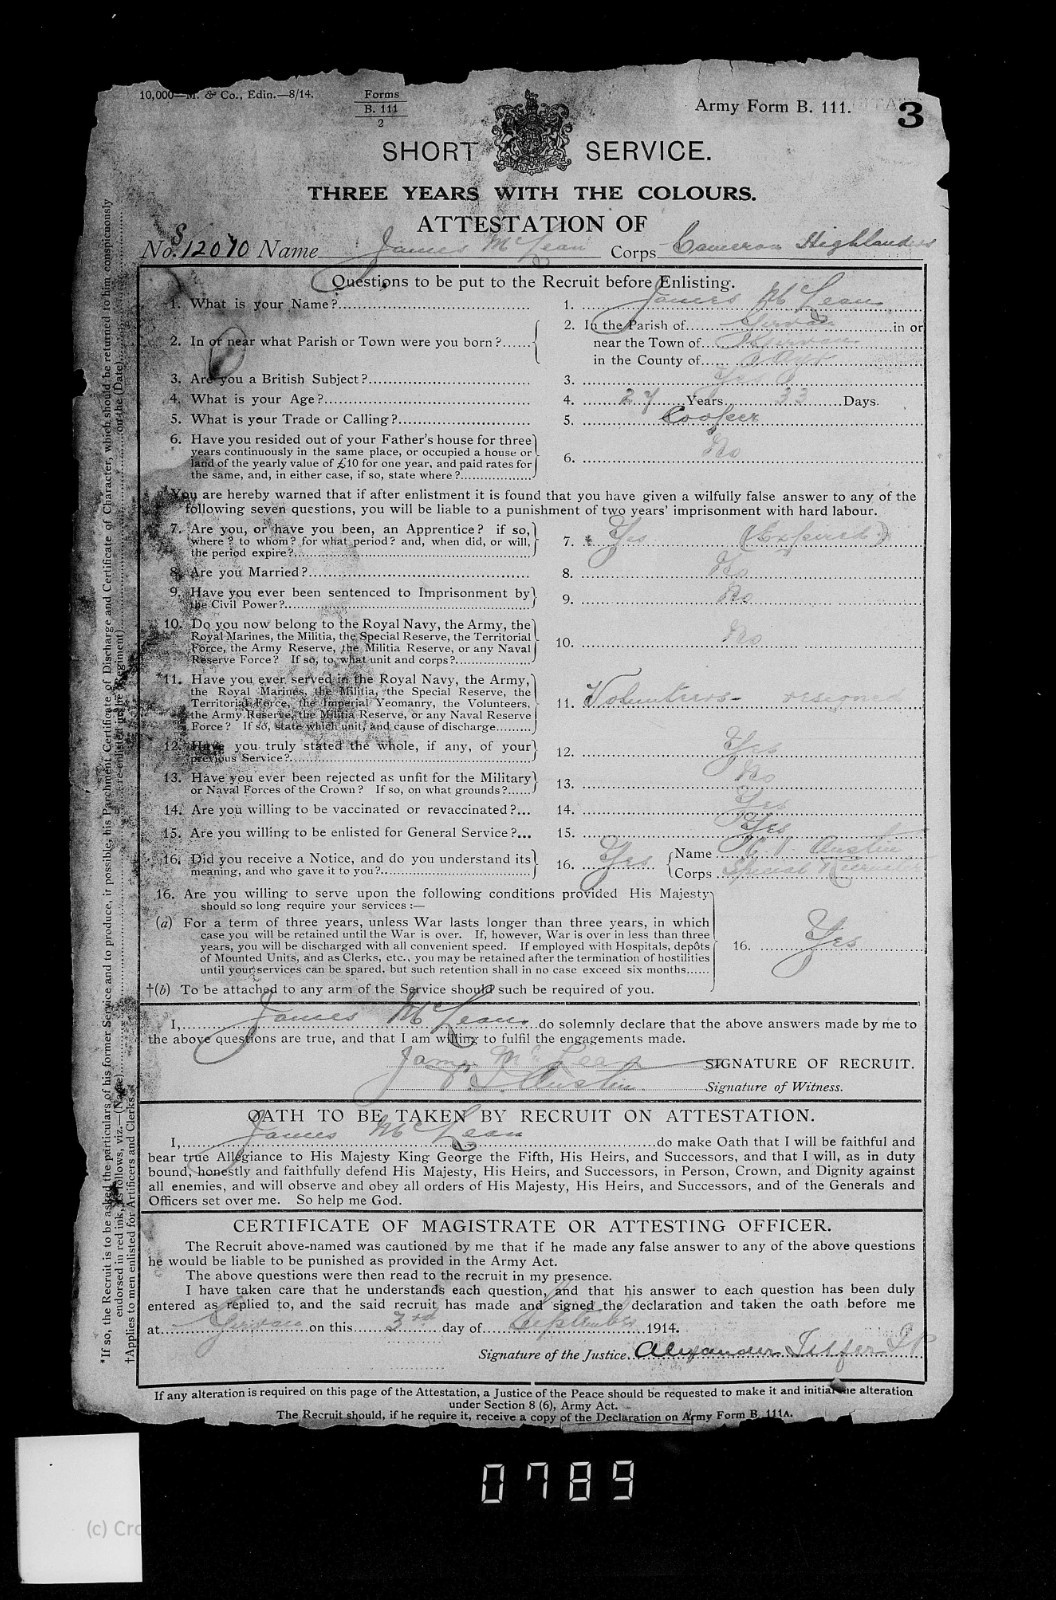 10,000—M. & Co., Edin.—8/14.
Forms
B. 111
2
Army Form B. 111.
3
SHORT SERVICE.
THREE YEARS WITH THE COLOURS.
ATTESTATION OF
No. S/12070 Name James McLean Corps Cameron Highlanders
Questions to be put to the Recruit before Enlisting.
1. What is your Name? 1. James McLean
2. In or near what Parish or Town were you born? 2. In the Parish of Girvan in or
near the Town of Girvan
in the County of Ayr
3. Are you a British Subject? 3. Yes
4. What is your Age? 4. 27 Years 33 Days.
5. What is your Trade or Calling? 5. Cooper
6. Have you resided out of your Father's house for three
years continuously in the same place, or occupied a house or
land of the yearly value of £10 for one year, and paid rates for
the same, and, in either case, if so, state where? 6. No
You are hereby warned that if after enlistment it is found that you have given a wilfully false answer to any of the
following seven questions, you will be liable to a punishment of two years' imprisonment with hard labour.
7. Are you, or have you been, an Apprentice? if so,
where? to whom? for what period? and, when did, or will,
the period expire? 7. Yes (Expired)
8. Are you Married? 8. No
9. Have you ever been sentenced to Imprisonment by
the Civil Power? 9. No
10. Do you now belong to the Royal Navy, the Army, the
Royal Marines, the Militia, the Special Reserve, the Territorial
Force, the Army Reserve, the Militia Reserve, or any Naval
Reserve Force? If so, to what unit and corps? 10. No
*11. Have you ever served in the Royal Navy, the Army,
the Royal Marines, the Militia, the Special Reserve, the
Territorial Force, the Imperial Yeomanry, the Volunteers,
the Army Reserve, the Militia Reserve, or any Naval Reserve
Force? If so, state which unit, and cause of discharge 11. Volunteers - resigned
12. Have you truly stated the whole, if any, of your
previous Service? 12. Yes
13. Have you ever been rejected as unfit for the Military
or Naval Forces of the Crown? If so, on what grounds? 13. No
14. Are you willing to be vaccinated or revaccinated?... 14. Yes
15. Are you willing to be enlisted for General Service?... 15. Yes
16. Did you receive a Notice, and do you understand its
meaning, and who gave it to you? 16. Yes Name Austin
Corps Special
16. Are you willing to serve upon the following conditions provided His Majesty
should so long require your services:—
(a) For a term of three years, unless War lasts longer than three years, in which
case you will be retained until the War is over. If, however, War is over in less than three
years, you will be discharged with all convenient speed. If employed with Hospitals, depôts
of Mounted Units, and as Clerks, etc., you may be retained after the termination of hostilities
until your services can be spared, but such retention shall in no case exceed six months 16. Yes
†(b) To be attached to any arm of the Service should such be required of you.
I, James McLean do solemnly declare that the above answers made by me to
the above questions are true, and that I am willing to fulfil the engagements made.
James McLean SIGNATURE OF RECRUIT.
Austin Signature of Witness.
OATH TO BE TAKEN BY RECRUIT ON ATTESTATION.
I, James McLean do make Oath that I will be faithful and
bear true Allegiance to His Majesty King George the Fifth, His Heirs, and Successors, and that I will, as in duty
bound, honestly and faithfully defend His Majesty, His Heirs, and Successors, in Person, Crown, and Dignity against
all enemies, and will observe and obey all orders of His Majesty, His Heirs, and Successors, and of the Generals and
Officers set over me. So help me God.
CERTIFICATE OF MAGISTRATE OR ATTESTING OFFICER.
The Recruit above-named was cautioned by me that if he made any false answer to any of the above questions
he would be liable to be punished as provided in the Army Act.
The above questions were then read to the recruit in my presence.
I have taken care that he understands each question, and that his answer to each question has been duly
entered as replied to, and the said recruit has made and signed the declaration and taken the oath before me
at Girvan on this 3rd day of September 1914.
Signature of the Justice Alexander Telfer J P
If any alteration is required on this page of the Attestation, a Justice of the Peace should be requested to make it and initial the alteration
under Section 8 (6), Army Act.
The Recruit should, if he require it, receive a copy of the Declaration on Army Form B. 111A.
*If so, the Recruit is to be asked the particulars of his former Service and to produce, if possible, his Parchment Certificate of Discharge and Certificate of Character, which should be returned to him conspicuously
endorsed in red ink, as follows, viz.—(Name) re-enlisted in the (Regiment) on the (Date)
†Applies to men enlisted for Artificers and Clerks.
0789
(c) Cro